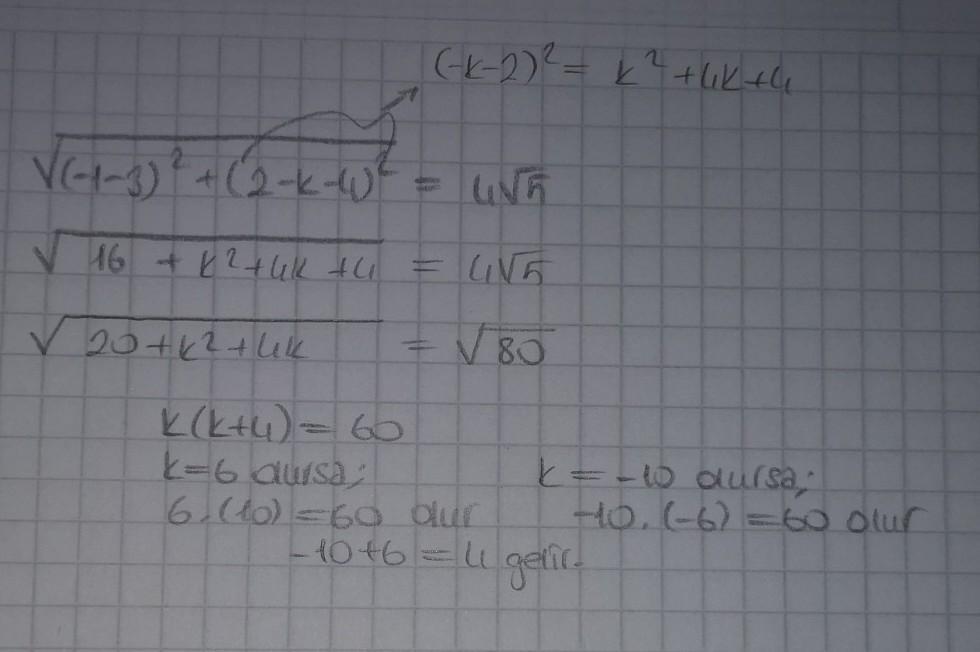 (-k-2)² = k²+4k+4
√(-1-3)² + (2-k-4)² = 4√5
√16 + k²+4k+4 = 4√5
√20+k²+4k = √80
k(k+4) = 60
k=6 olursa; k = -10 olursa;
6.(10) = 60 olur -10.(-6) = 60 olur
-10+6 = 4 gelir.